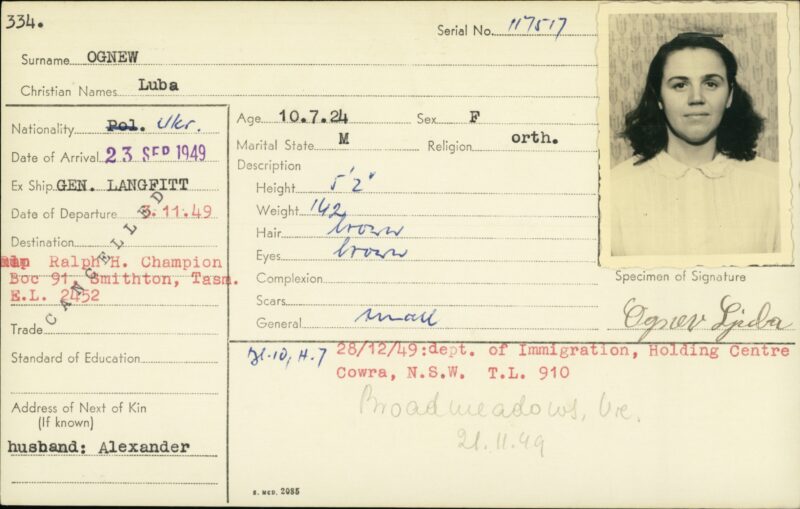 334.
Serial No. 117517
Surname OGNEW
Christian Names Luba
Nationality Pol. Ukr.
Date of Arrival 23 SEP 1949
Ex Ship GEN. LANGFITT
Date of Departure 3.11.49
Destination
Ralph H. Champion
Boc 91, Smithton, Tasm.
E.L. 2452
CANCELLED
Trade
Standard of Education
Address of Next of Kin
(If known)
husband: Alexander
Age 10.7.24 Sex F
Marital State M Religion orth.
Description
Height 5'2"
Weight 142
Hair brown
Eyes brown
Complexion
Scars
General small
Specimen of Signature
Ognev Ljuba
Bl.10, H.7 28/12/49:dept. of Immigration, Holding Centre
Cowra, N.S.W. T.L. 910
Broadmeadows, Vic.
21.11.49
S. MCD. 2085